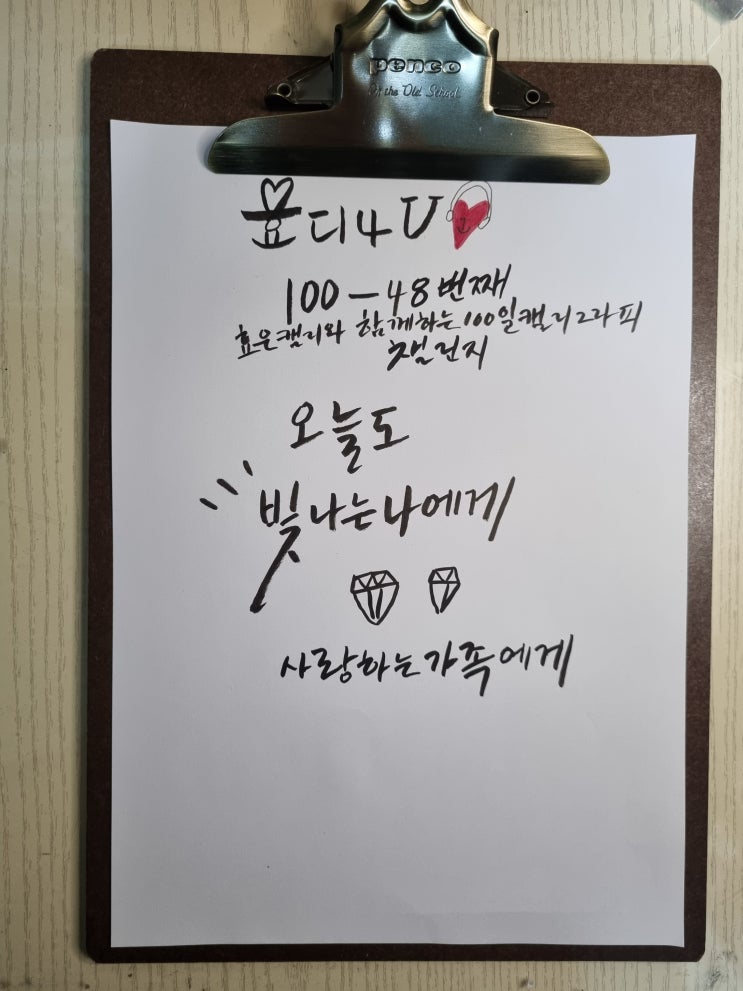 penco
of the Old School
욘디4U
100-48번째
효은캘리와 함께하는100일캘리그라피
챌린지
오늘도
빛나는나에게
사랑하는가족에게